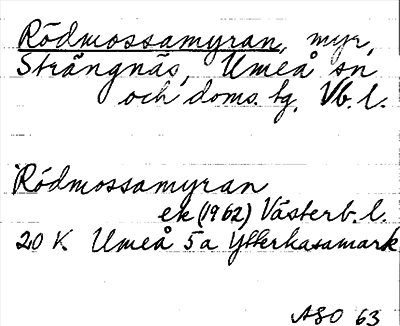 Rödmossamyran, myr,
Strängnäs, Umeå sn
och doms. tg. Vb. l.
Rödmossamyran
ek (1962) Västerb. l.
20 K Umeå 5a Ytterkasamark
ASO 63